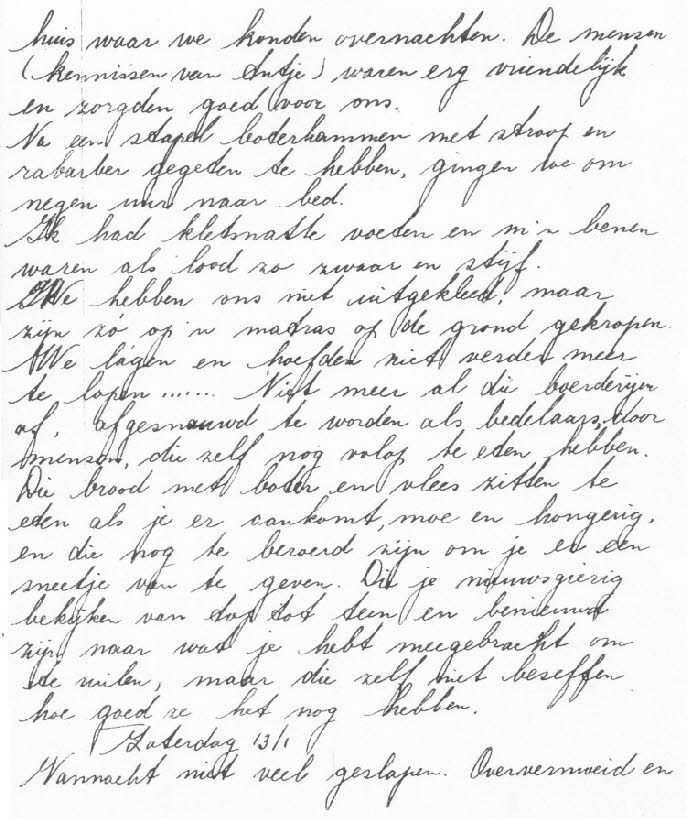 huis waar we konden overnachten. De mensen
(kennissen van Antje) waren erg vriendelijk
en zorgden goed voor ons.
Na een stapel boterhammen met stroop en
rabarber gegeten te hebben, gingen we om
negen uur naar bed.
Ik had kletsnatte voeten en m'n benen
waren als lood zo zwaar en stijf.
We hebben ons niet uitgekleed, maar
zijn zó op 'n matras op de grond gekropen.
We lágen en hoefden niet verder meer
te lopen....... Niet meer al die boerderijen
af, afgesnauwd te worden als bedelaars, door
mensen, die zelf nog volop te eten hebben.
Die brood met boter en vlees zitten te
eten als je er aankomt, moe en hongerig,
en die nog te beroerd zijn om je er een
sneetje van te geven. Die je nieuwsgierig
bekijken van top tot teen en benieuwd
zijn naar wat je hebt meegebracht om
te ruilen, maar die zelf niet beseffen
hoe goed ze het nog hebben.
Zaterdag 13/1
Vannacht niet veel geslapen. Oververmoeid en